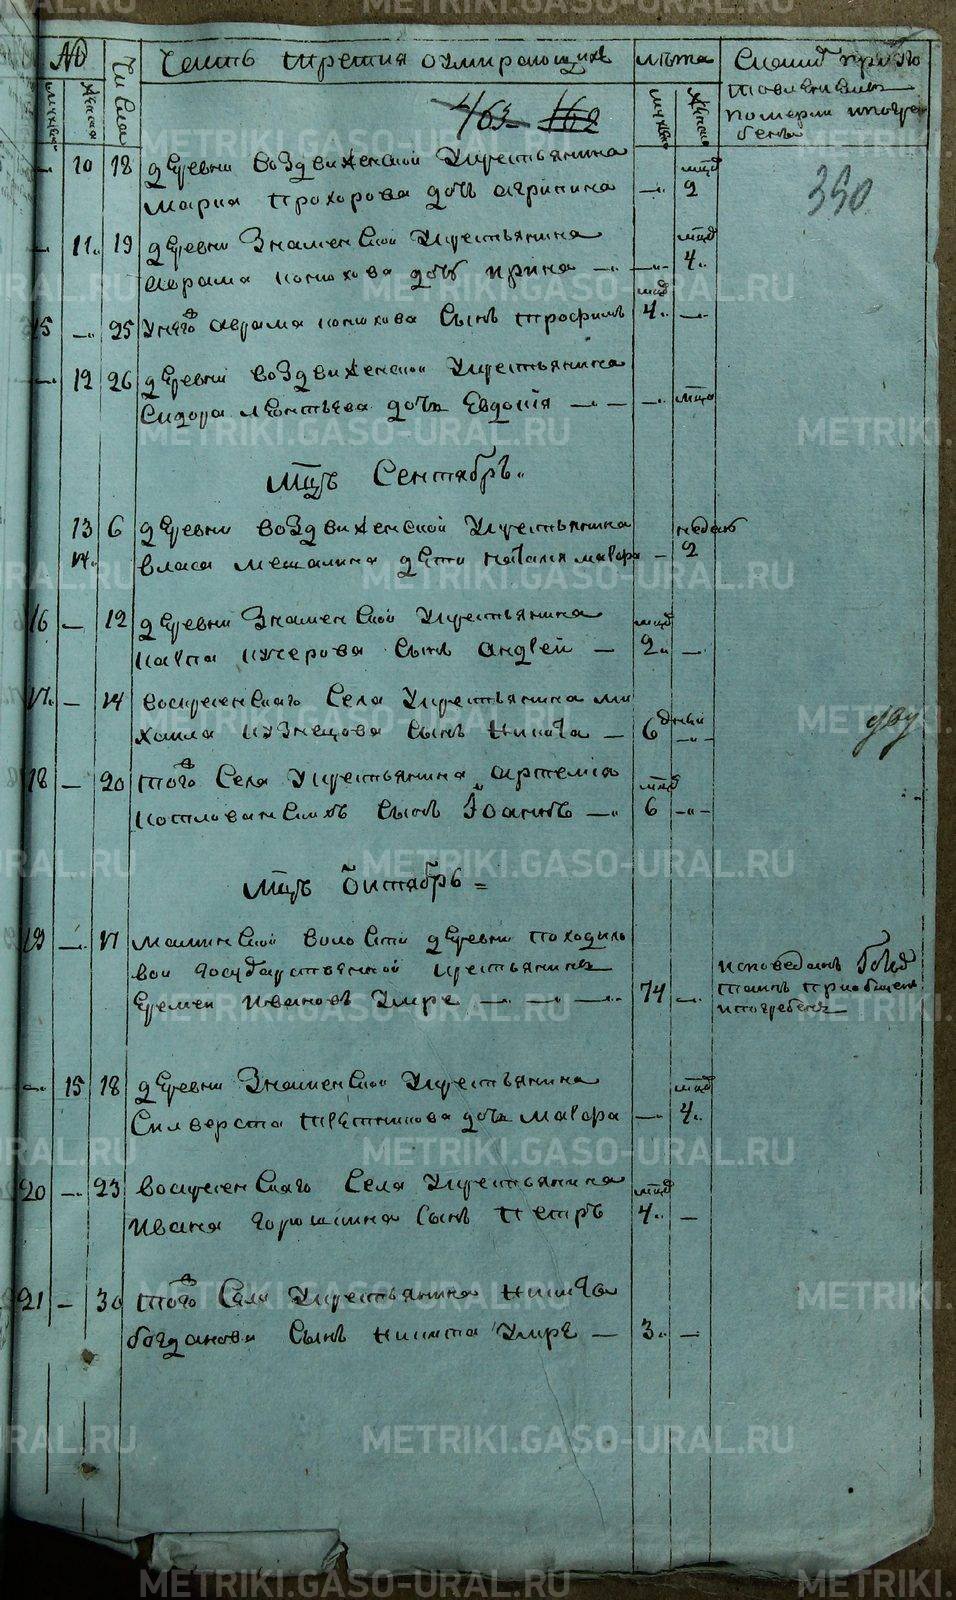 № Числа Часть третия о умирающихъ лѣта
мужеска женска мужска женска
463 162
350
померли и погре
бены
мцд
10 18 деревни воздвиженской Укрестьянина
Мария Прохорова дочь агрипина — 2
мцд
11. 19 деревни Знаменской Укрестьянина
аврама конюхова дочь ирина — 4.
мцд
15 — 25 Унего аврама конюхова Сынъ трофимъ 4. —
— 12 26 деревни воздвиженской Укрестьянина
Сидора леонтьева дочь Евдокія — — — мцд
Мцъ Сентябрь.
13 6 деревни воздвиженской Укрестьянина недель
14. власа мешалкина дети наталия мавра — 2
16 — 12 деревни Знаменской Укрестьянина мцд
карпа кучерова Сынъ андрей — 2. —
17. — 14 воскресенскаго Села Укрестьянина ми
хаила кузнецова Сынъ никита — 6 дней —
18 — 20 того Села Укрестьянина артемія мцд
котловансихъ Сынъ Іоаннъ — 6 —
Мцъ Октябрь =
19 — 17 маминской волости деревни походиль
вой государственной крестьянинъ
Еремеи Ивановъ Умре — — — 74 —
исповеданъ
таинъ приобщенъ
и погребенъ
— 15 18 деревни Знаменской Укрестьянина мцд
Силверста дочь мавра — 4.
20 — 23 воскресенскаго Села Укрестьянина мцд
Ивана горошкина Сынъ Петръ 4. —
21 — 30 того Села Укрестьянина никиты
богданова Сынъ никита Умре — 3. —
METRIKI.GASO-URAL.RU